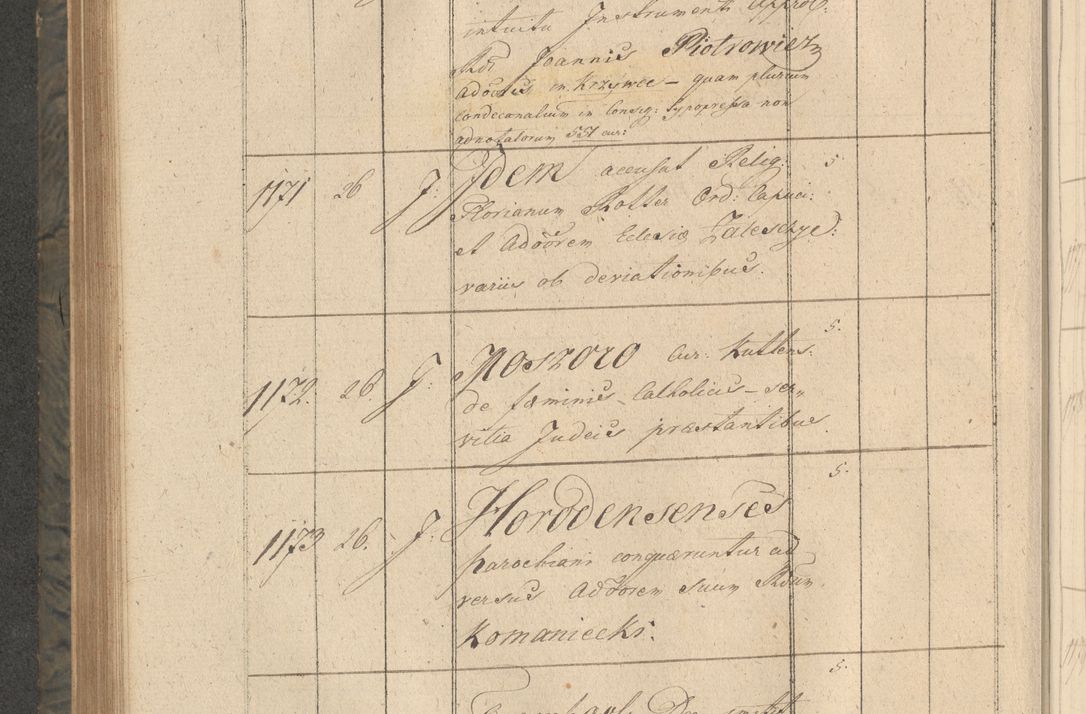 intuitu Instrumenti Approb:
Rdi Joannis Piotrowicz
Adōris in Krzywce – quam plurium
condecanalium in Consig: hypopressa non
adnotatorum 551 cur:
1171 26 J: Idem accusat Relig: 5
Florianum Rotter Ord: Capuci:
et Adōorem Eclesiæ Zalesczyc:
variis ob deviationibus.
1172. 26. J: Moszoro Cur: Kuttens: 5.
de fæminis Catholicis – ser„
vitia Judeis præstantibus.
1173 26. J: Horodensenses 5.
parochiani conquæruntur ad
versus Adōorem suum Rdum
Komaniecki.
5.